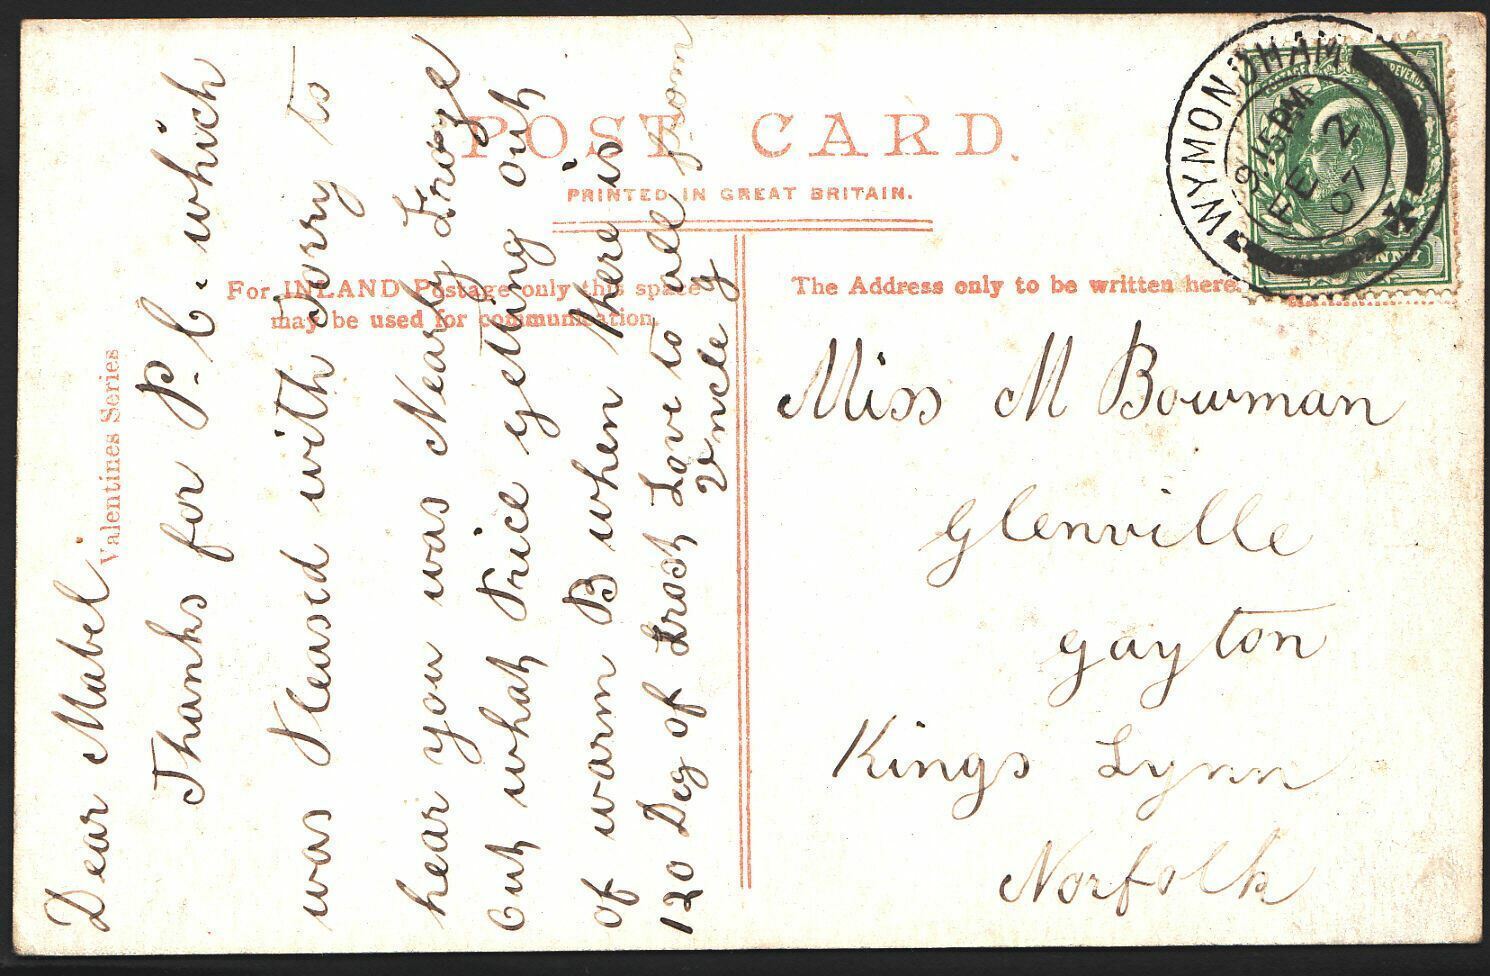 POST CARD.
PRINTED IN GREAT BRITAIN.
For INLAND Postage only this space
may be used for communication.
The Address only to be written here.
Valentines Series
WYMONDHAM
9.15PM
FE 2
07
POSTAGE REVENUE
HALFPENNY
Dear Mabel.
Thanks for P.C. which
was Pleased with sorry to
hear you was Nearly Froze
but what Price getting out
of warm B when there is
120 Deg of Frost Love to all from
Uncle G
Miss M Bowman
Glenville
Gayton
Kings Lynn
Norfolk